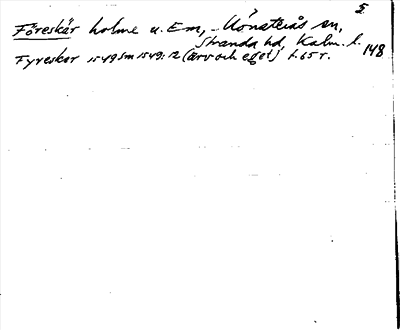 5
Föreskär holme u. Em, Mönsterås sn,
Stranda hd, Kalm. l.
Fyreskor 1549 Sm 1549:12 (arv och eget) f. 65 r. 148